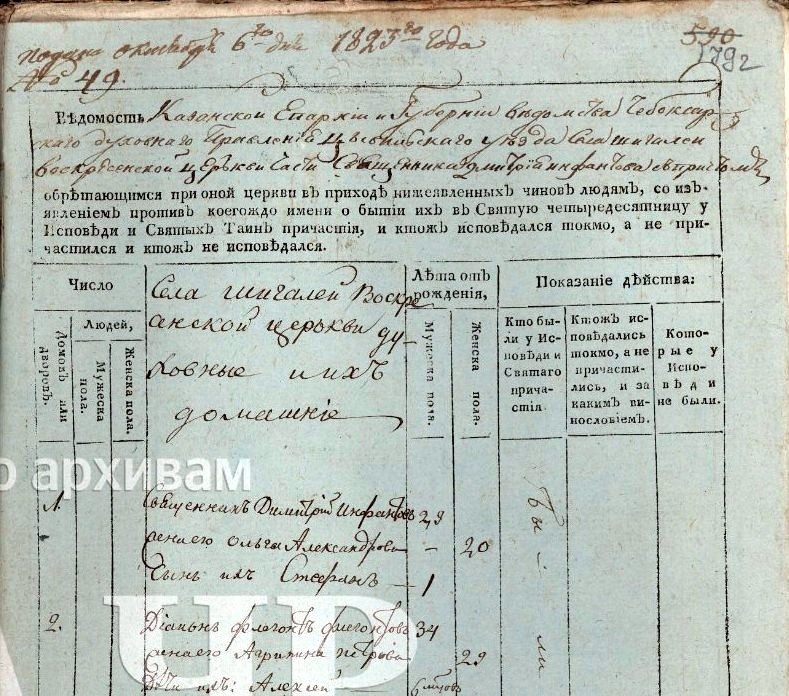 подана октября 6го дня 1823го года
№ 49
590
792
Вѣдомость Казанской Епархіи и Губерніи вѣдомства Чебоксар-
скаго духовнаго Правленіе Цывильскаго уѣзда Села шигалей
воскресенской церькви Части Священника димитрія инфантова
обрѣтающимся при оной церкви въ приходѣ нижеявленныхъ чиновъ людямъ, со изъ-
явленіемъ противъ коегождо имени о бытіи ихъ въ Святую четыредесятницу у
Исповѣди и Святыхъ Таинъ причастія, и ктожъ исповѣдался токмо, а не при-
частился и ктожъ не исповѣдался.
Число
Людей,
Домовъ или дворовъ.
Мужеска пола.
Женска пола.
Села шигалей Воскре
сенской церькви ду-
ховные и ихъ
домашніе
Лѣта отъ рожденія,
Мужеска пола.
Женска пола.
Показаніе дѣйства:
Кто бы-
ли у Ис-
повѣди и
Святаго
прича-
стія.
Ктожъ ис-
повѣдались
токмо, а не
причасти-
лись, и за
какимъ ви-
нословіемъ.
Кото-
рые у
Испо-
вѣди
не были.
о архивам
1. Священникъ Димитрій Инфантовъ 29
жена его Ольга Александрова – 20
Сынъ ихъ Стефанъ – 1
бы-
ли
2. Діаконъ флегонтъ флегонтовъ 34
жена его Агрипина петрова 29
Дѣти ихъ: Алексей 6
UP